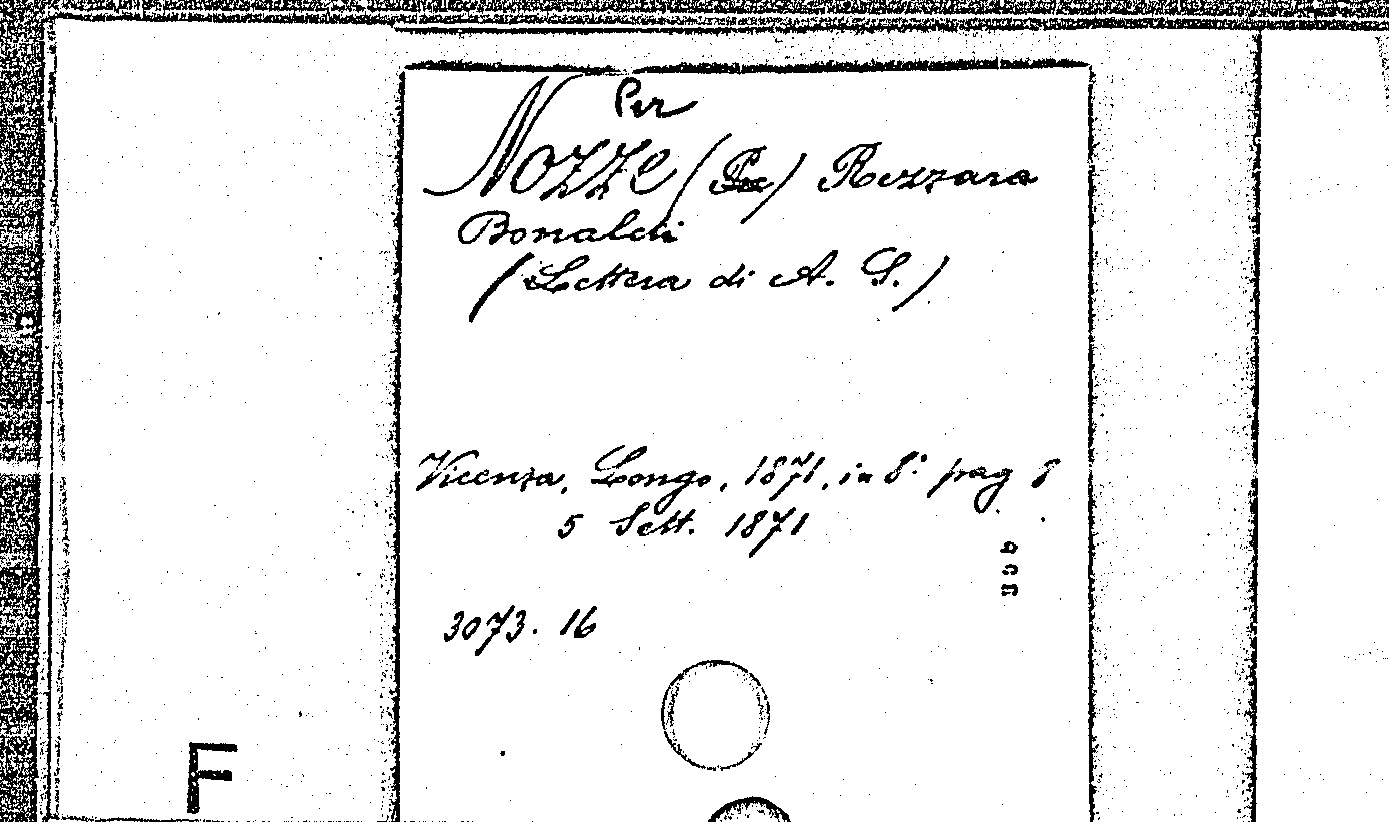 Per
Nozze (Per) Rezzara
Bonaldi
(Lettera di A. S.)
Vicenza, Longo, 1871, in 8° pag 8
5 Sett. 1871
3073. 16
F